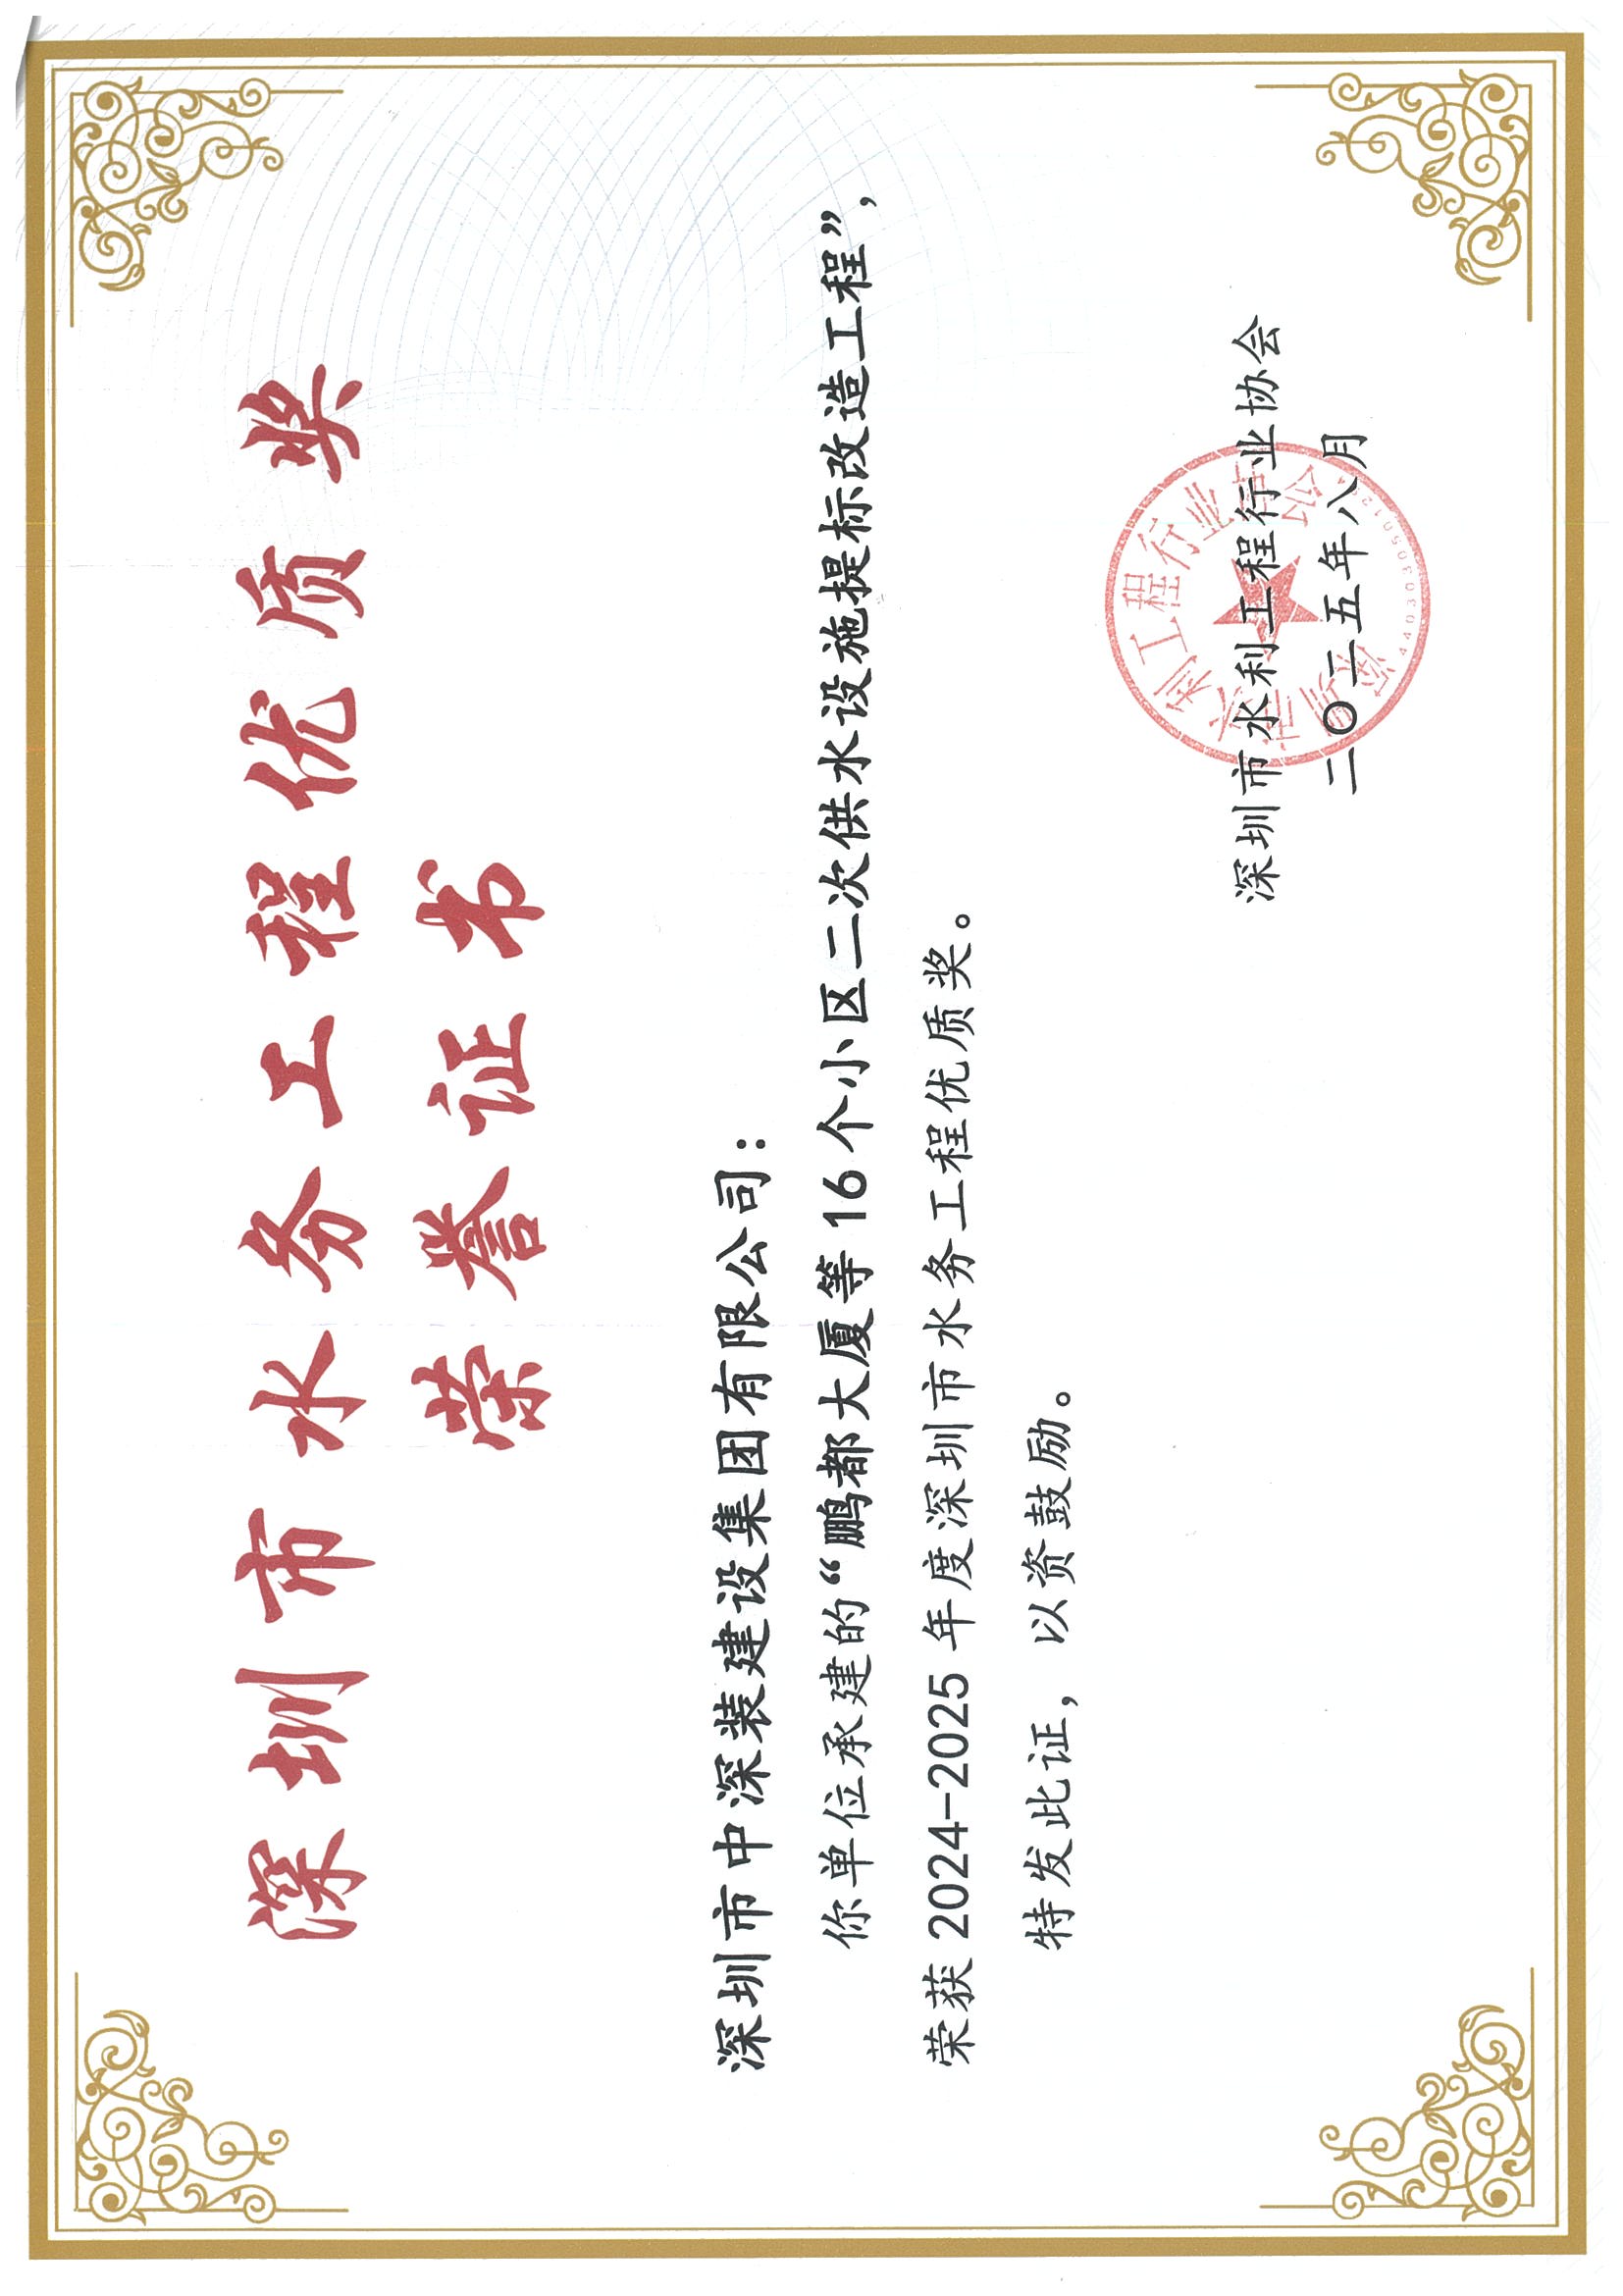 深圳市水务工程优质奖
荣誉证书
深圳市中深装建设集团有限公司：
你单位承建的“鹏都大厦等16个小区二次供水设施提标改造工程”，
荣获2024-2025年度深圳市水务工程优质奖。
特发此证，以资鼓励。
深圳市水利工程行业协会
二〇二五年八月